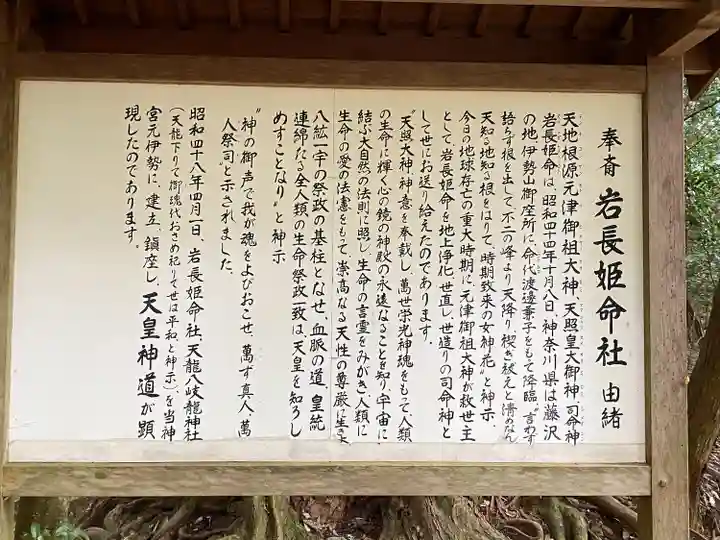 奉斎 岩長姫命社 由緒
天地根源元津御祖大神、天照皇大御神、司命神
岩長姫命は、昭和四十四年十月八日、神奈川県は藤沢
の地伊勢山御座所に、命代渡邊兼子をもて降臨〝言わず
語らず根を出して、不二の峰より天降り、楔ぎ祓えと清めなん
天知る地知る根をはりて、時期致来の女神花〟と神示、
今日の地球存亡の重大時期に、元津御祖大神が救世主
として、岩長姫命を地上浄化、世直し、世造りの司命神と
して世にお送り給えたのであります。
〝天照大神、神意を奉戴し、萬世栄光神魂をもって、人類
の生命に輝く心の鏡の神殿の永遠なることを知り、宇宙に
結ぶ大自然の法則に照し、生命の言霊をみがき、人類に
生命の愛の法憲をもって、崇高なる天性の尊厳に生き
八紘一宇の祭政の基柱となせ、血脈の道、皇統
連綿たる全人類の生命祭政一致は、天皇を知ろし
めすことなり〟と神示
〝神の御声で我が魂をよびおこせ、萬ず真人、萬
人祭司〟と示されました。
昭和四十八年四月一日、岩長姫命社、天龍八岐龍神社
(天龍下りて御魂代おさめ祀りて世は平和と神示)を当神
宮元伊勢に、建立、鎮座し、天皇神道が顕
現したのであります。